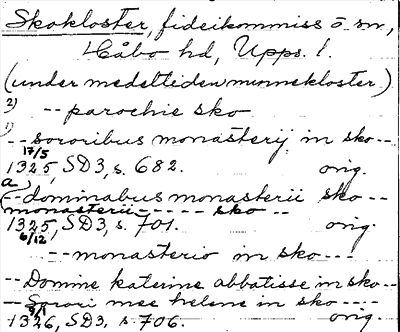 Skokloster, fideikommiss o. sn,
Håbo hd, Upps. l.
(under medeltiden nunnekloster.)
2) -- parochie sko
1) -- sororibus monasterij in sko --
17/5
1325, SD3, s. 682. orig.
a) -- dominabus monasterii sko ---
(monasterii ----- sko --
1325, SD3, s. 701. orig.
6/12
-- monasterio in sko ---
-- Domine katerine abbatisse in sko --
-- Sorori mee helene in sko ----
1326, SD3, s. 706. orig.